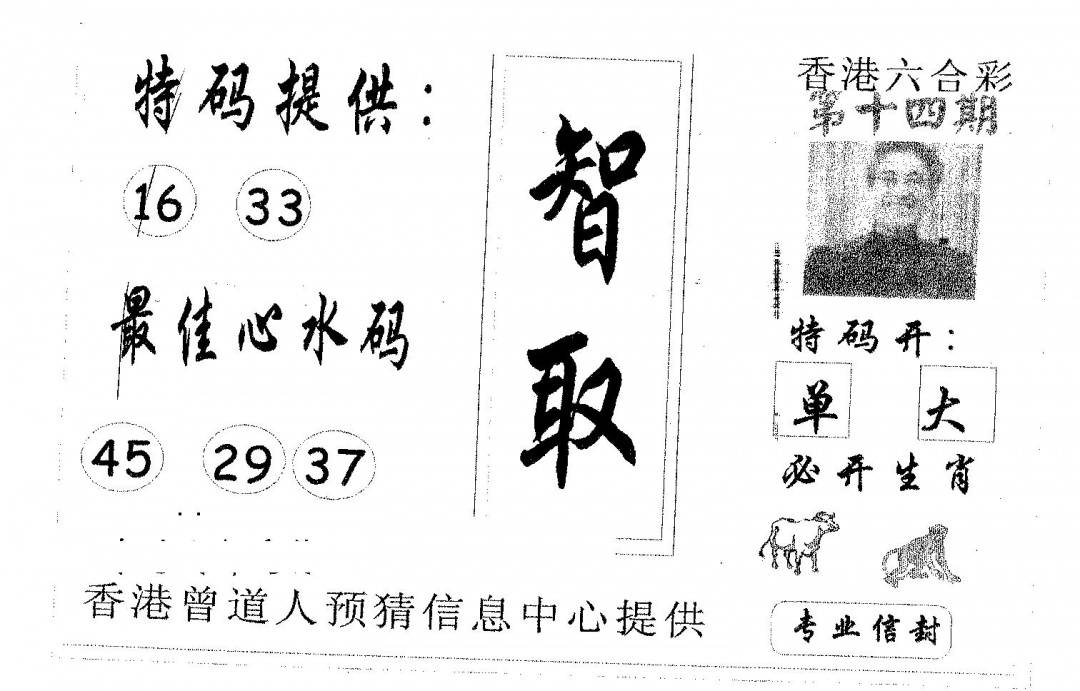 特码提供：
16 33
最佳心水码
45 29 37
智取
香港六合彩
第十四期
特码开：
单 大
必开生肖
专业信封
香港曾道人预猜信息中心提供